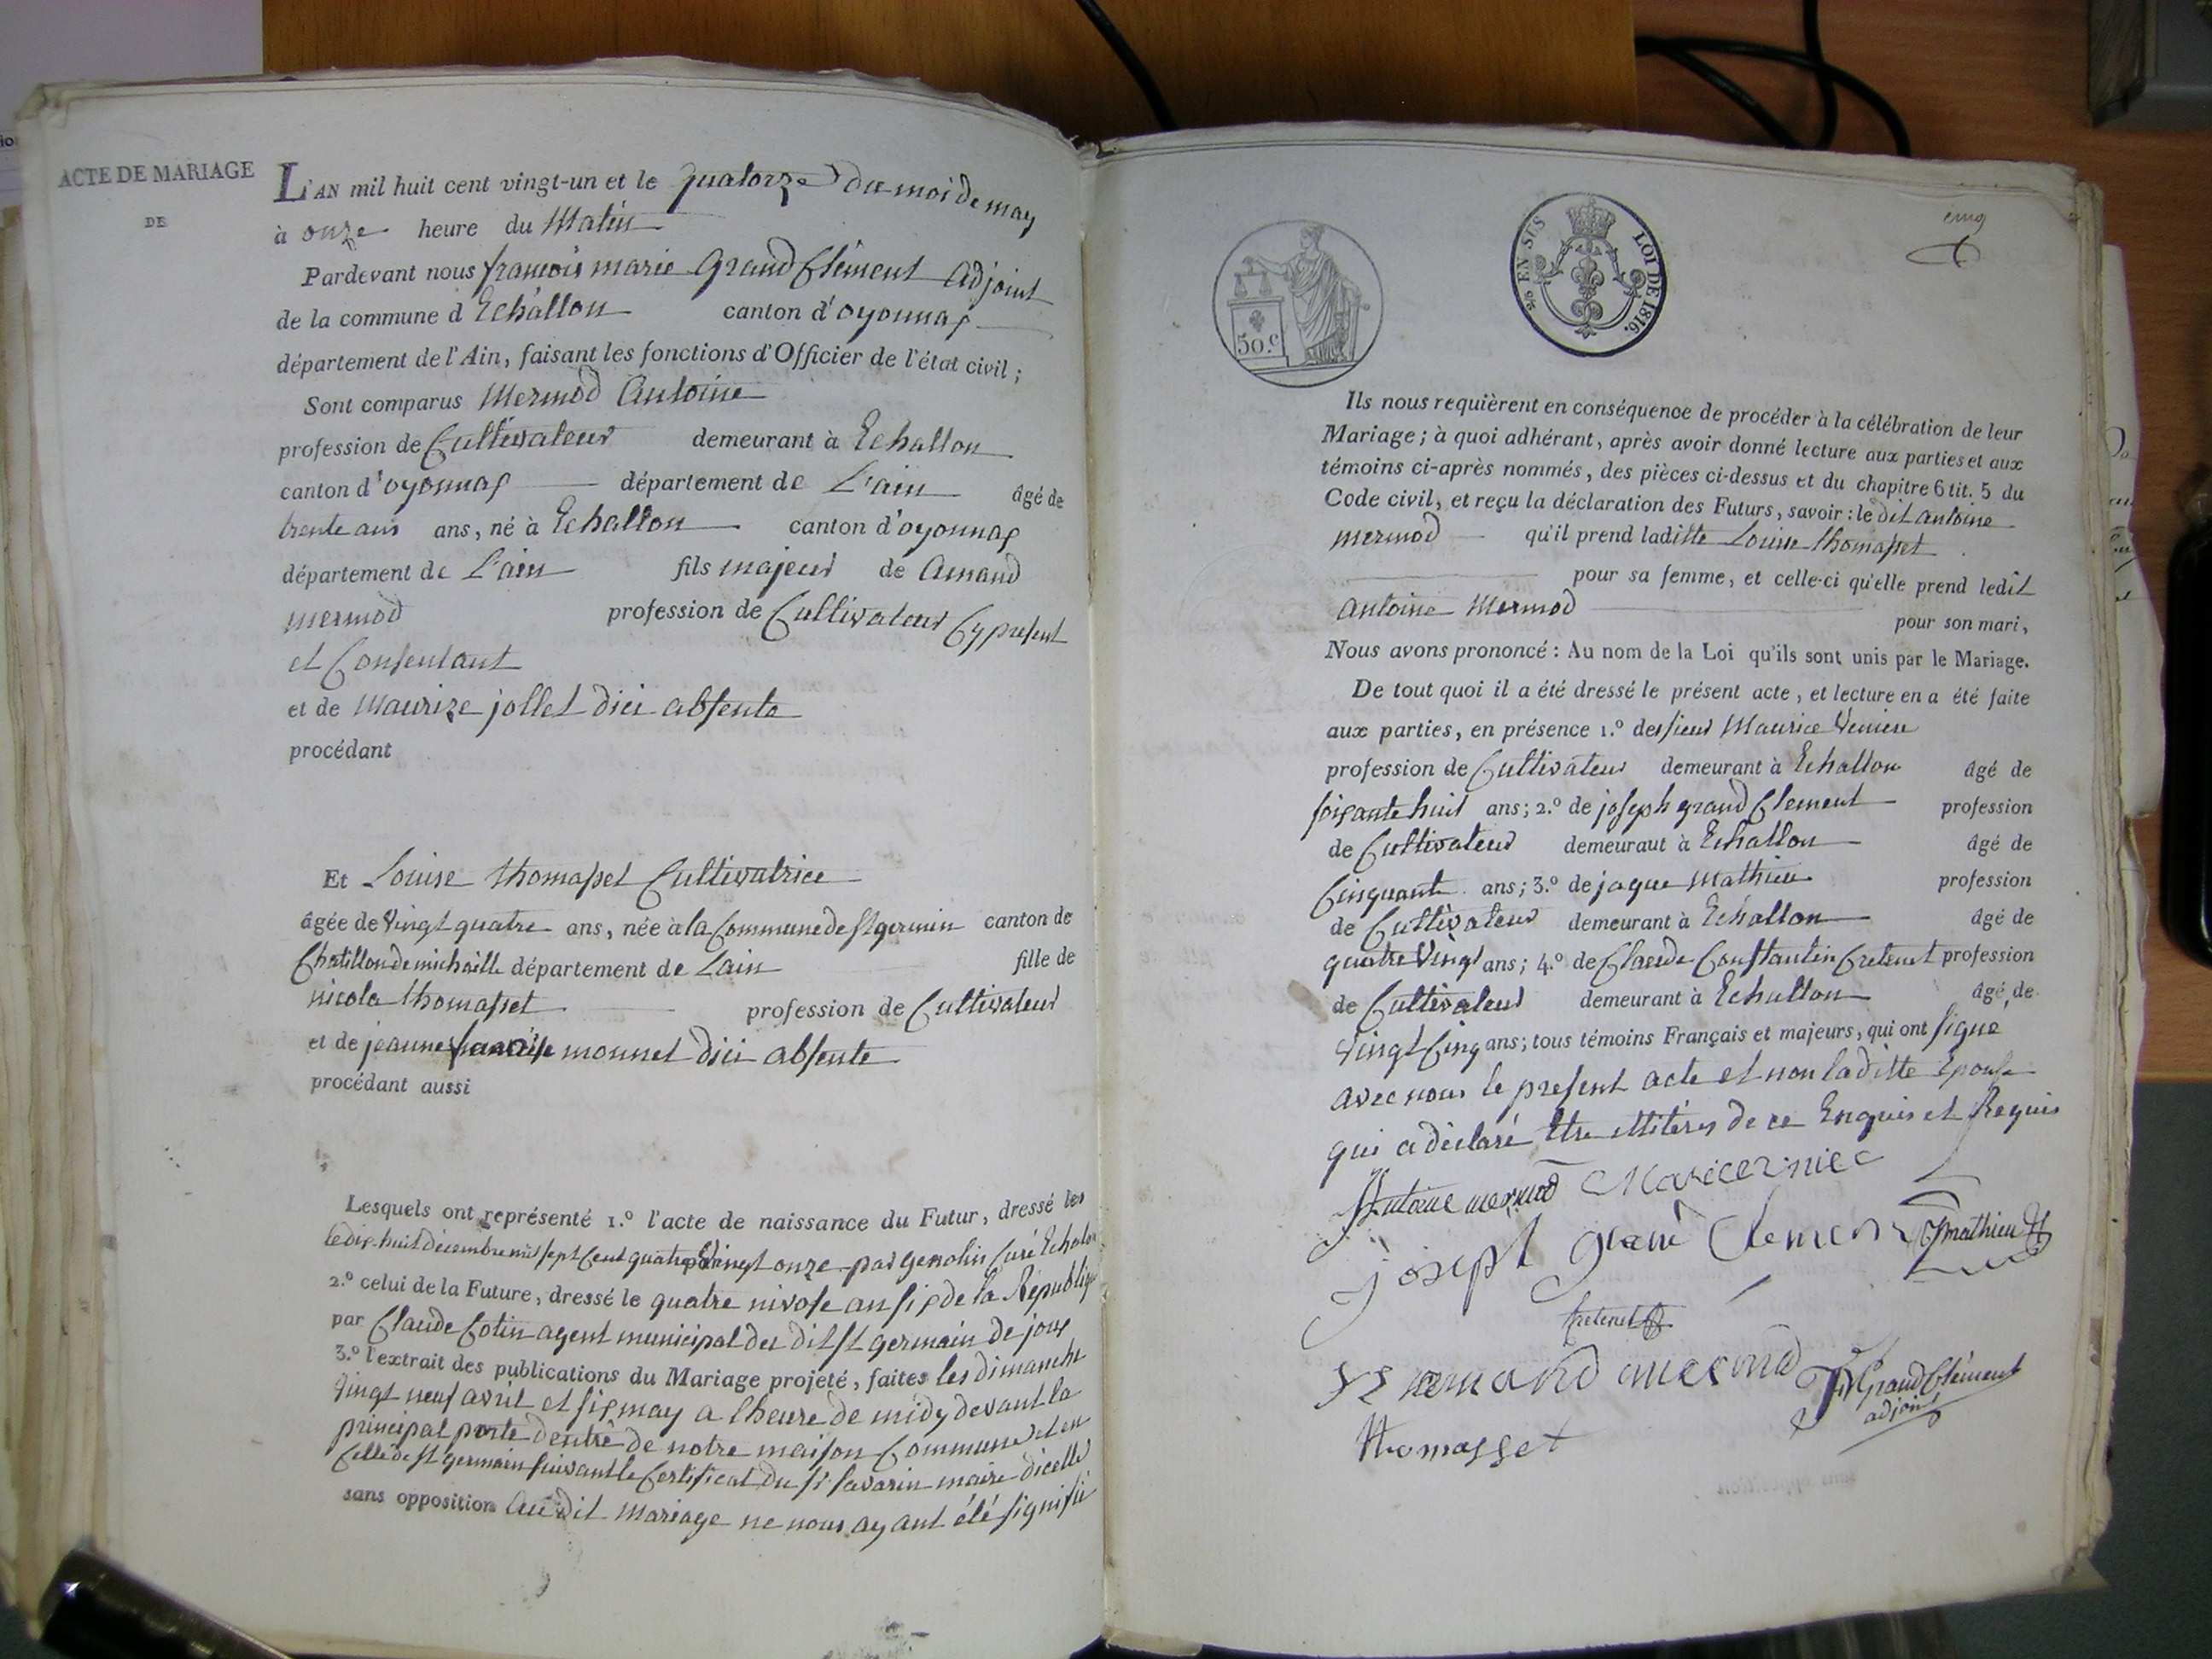 ACTE DE MARIAGE
DE
L'AN mil huit cent vingt-un et le quatorze du moi de may
à onze heure du Matin
Pardevant nous francois marie Grand Clément Adjoint
de la commune d Echallon canton d'oyonnax
département de l'Ain, faisant les fonctions d'Officier de l'état civil ;
Sont comparus Mermod Antoine
profession de Cultivateur demeurant à Echallon
canton d'oyonnax département de L'ain âgé de
trente ans ans, né à Echallon canton d'oyonnax
département de L'ain fils majeur de Amand
mermod profession de Cultivateur Cy present
et Consentant
et de Maurize jollet dici absente
procédant
Et Louise thomasset Cultivatrice
âgée de Vingt quatre ans, née à la Commune de St germin canton de
Chatillon de michaille département de Lain fille de
nicola thomasset profession de Cultivateur
et de jeanne monnet dici absente
procédant aussi
Lesquels ont représenté 1.º l'acte de naissance du Futur, dressé les
le dix-huit decembre mil sept Cent quatre Vingt onze par genolin Curé Echalon
2.º celui de la Future, dressé le quatre nivose an six de la Republiq
par Claude Cotin agent municipal du dit St germain de joux
3.º l'extrait des publications du Mariage projeté, faites les dimanche
Vingt neuf avril et six may a lheure de midy devant la
principal porte dentrè de notre maison Commune et en
Celle de St germain suivant le Certificat du Sr. savarin maire dicelle
sans opposition Au dit Mariage ne nous ayant élé signifié
cinq
50.c
EN SUS
LOI DE 1816.
Ils nous requièrent en conséquence de procéder à la célébration de leur
Mariage ; à quoi adhérant, après avoir donné lecture aux parties et aux
témoins ci-après nommés, des pièces ci-dessus et du chapitre 6 tit. 5 du
Code civil, et reçu la déclaration des Futurs, savoir : le dit antoine
mermod qu'il prend laditte Louise thomasset
pour sa femme, et celle-ci qu'elle prend ledit
antoine Mermod
pour son mari,
Nous avons prononcé : Au nom de la Loi qu'ils sont unis par le Mariage.
De tout quoi il a été dressé le présent acte, et lecture en a été faite
aux parties, en présence 1.º de sieur Maurice
profession de Cultivateur demeurant à Echallon âgé de
soixante huit ans ; 2.º de joseph grand Clement profession
de Cultivateur demeuraut à Echallon âgé de
Cinquante ans ; 3.º de jaque Mathieu profession
de Cultivateur demeurant à Echallon âgé de
quatre Vingt ans ; 4.º de Claude Constantin Cretenet profession
de Cultivateur demeurant à Echallon âgé de
Vingt Cinq ans ; tous témoins Français et majeurs, qui ont signé
avec nous le present acte et non laditte Epouse
qui a déclaré Etre illitérés de ce Enquis et Requis
Antoine mermod
josept grand Clemen mathieu
Cretenet
Armand mermod f m Grand Clément
adjoint
thomasset